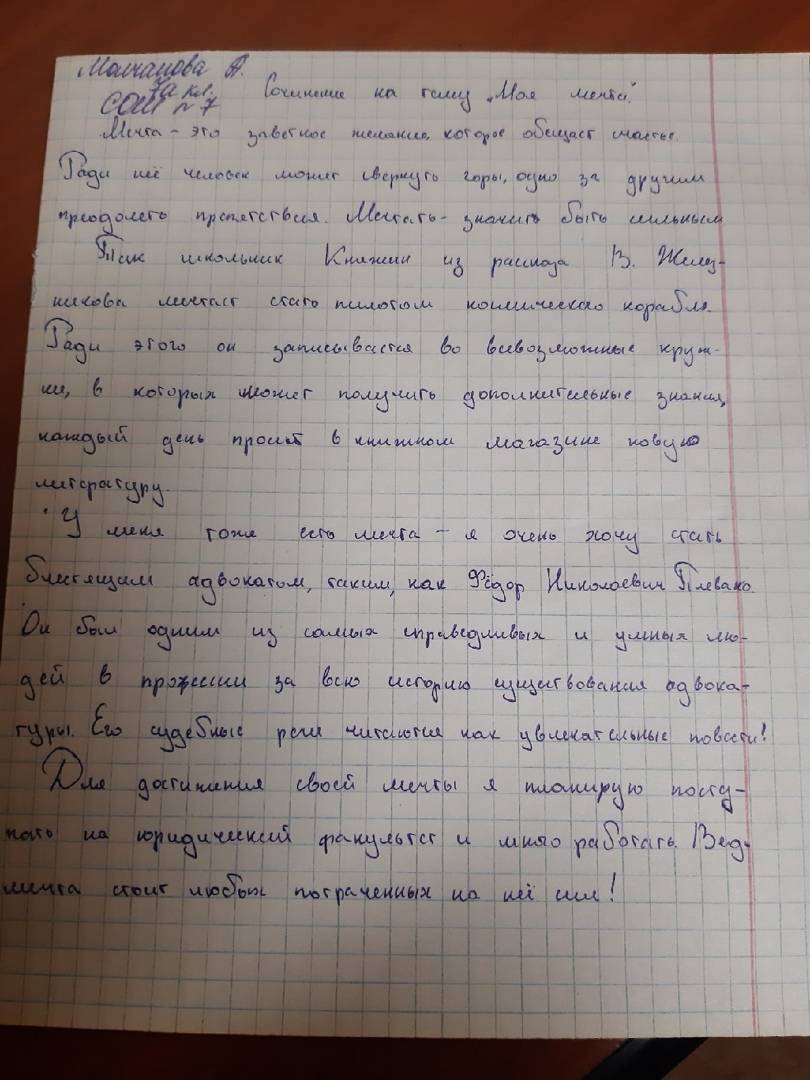 Молчанова А.
7а кл.
СОШ №7
Сочинение на тему „Моя мечта".
Мечта - это заветное желание, которое обещает счастье.
Ради неё человек может свернуть горы, одно за другим
преодолеть препятствия. Мечтать - значить быть сильным
Так школьник Княжин из рассказа В. Желез-
никова мечтает стать пилотом космического корабля.
Ради этого он записывается во всевозможные круж-
ки, в которых может получить дополнительные знания,
каждый день просит в книжном магазине новую
литературу.
У меня тоже есть мечта - я очень хочу стать
блестящим адвокатом, таким, как Фёдор Николаевич Плевако.
Он был одним из самых справедливых и умных лю-
дей в профессии за всю историю существования адвока-
туры. Его судебные речи читаются как увлекательные повести!
Для достижения своей мечты я планирую посту-
пать на юридический факультет и много работать. Ведь
мечта стоит любых потраченных на неё сил!